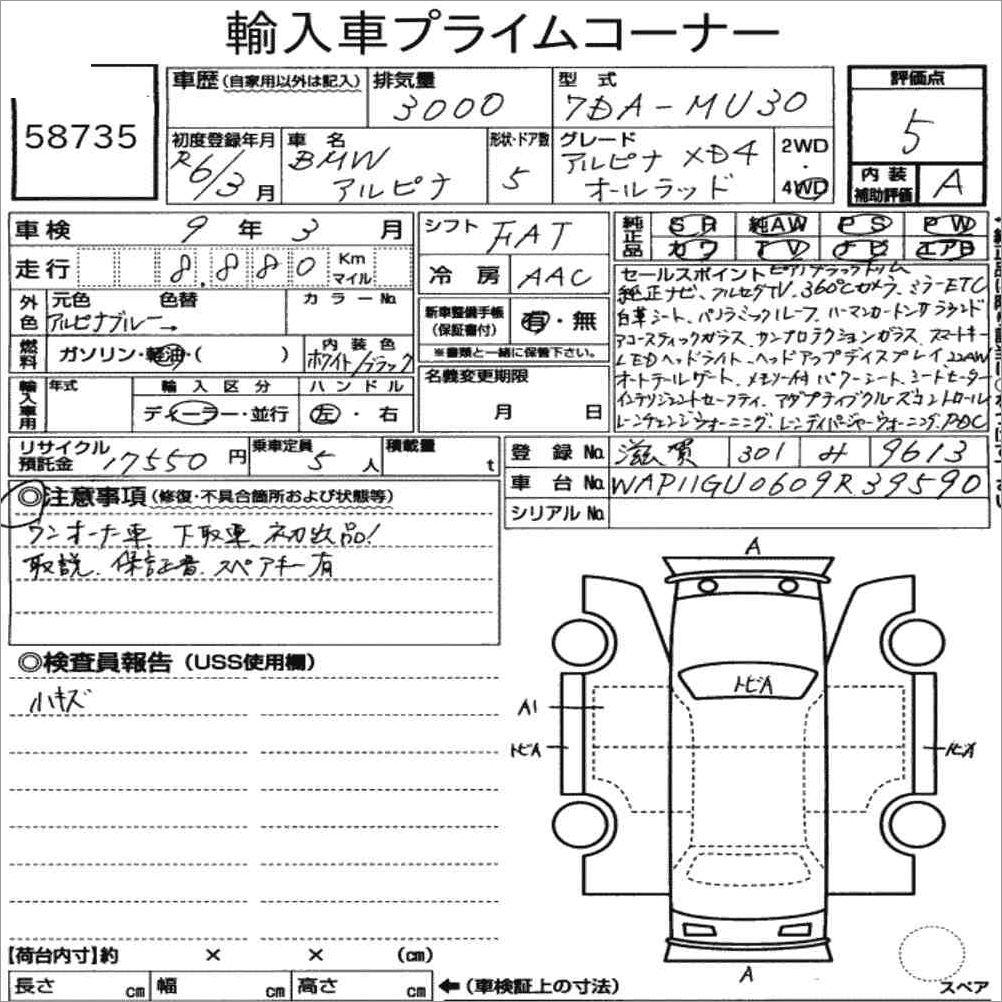 輸入車プライムコーナー
58735
車歴(自家用以外は記入)
排気量 3000
型式 7DA-MU30
評価点 5
初度登録年月 R6/3月
車名 BMW アルピナ
形状・ドア数 5
グレード アルピナ XD4 オールラッド
2WD・4WD
内装補助評価 A
車検 9年3月
シフト FAT
純正品 SR 純AW PS PW
カワ TV ナビ エアB
走行 8,880 Km マイル
冷房 AAC
セールスポイント ピアノブラックトリム
純正ナビ、フルセグTV、360°Cカメラ、ミラーETC
白革シート、パノラミックルーフ、ハーマンカードンサラウンド
アコースティックガラス、サンプロテクションガラス、スマートキー
LEDヘッドライト、ヘッドアップディスプレイ、22AW
オートテールゲート、メモリー付パワーシート、シートヒーター
インテリジェントセーフティ、アダプティブクルーズコントロール
レーンチェンジウォーニング、レーンディパーチャーウォーニング、PDC
外色 元色 色替 カラーNo.
アルピナブルー→
新車整備手帳(保証書付) 有・無
※書類と一緒に保管下さい。
燃料 ガソリン・軽油・( )
内装色 ホワイト/ブラック
名義変更期限 月 日
輸入車用 年式 輸入区分 ハンドル
ディーラー・並行 左・右
リサイクル預託金 17550円
乗車定員 5人
積載量 t
登録No. 滋賀 301 み 9613
車台No. WAP11GU0609R39590
シリアルNo.
◎注意事項(修復・不具合箇所および状態等)
ワンオーナー車、下取車、初出品!
取説、保証書、スペアキー有
◎検査員報告(USS使用欄)
小キズ
A
トビA
A1
トビA
トビA
A
スペア
【荷台内寸】約 × × (cm)
長さ cm 幅 cm 高さ cm ←(車検証上の寸法)